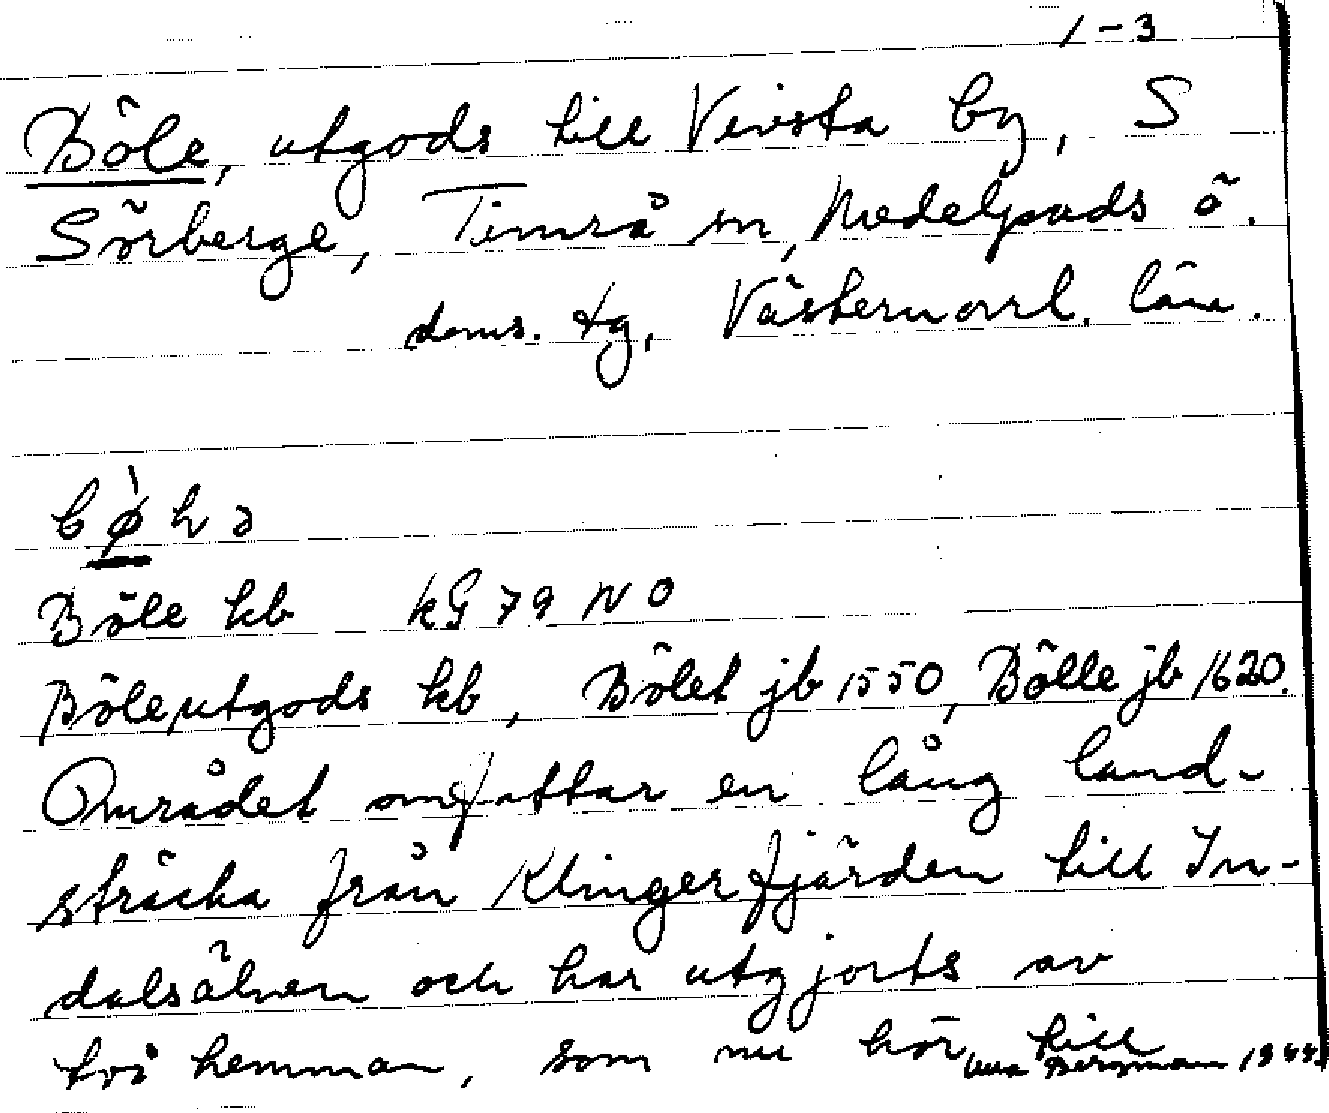 1-3
Böle, utgods till Vivsta by, S
Sörberge, Timrå sn, Medelpads ö.
doms. tg, Västernorrl. län.
Böle kb kG 79 NO
Böle utgods kb, Bölet jb 1550, Bölle jb 1620.
Området omfattar en lång land-
sträcka från Klingerfjärden till In-
dalsälven och har utgjorts av
två hemman, som nu hör till
Bergman 1944